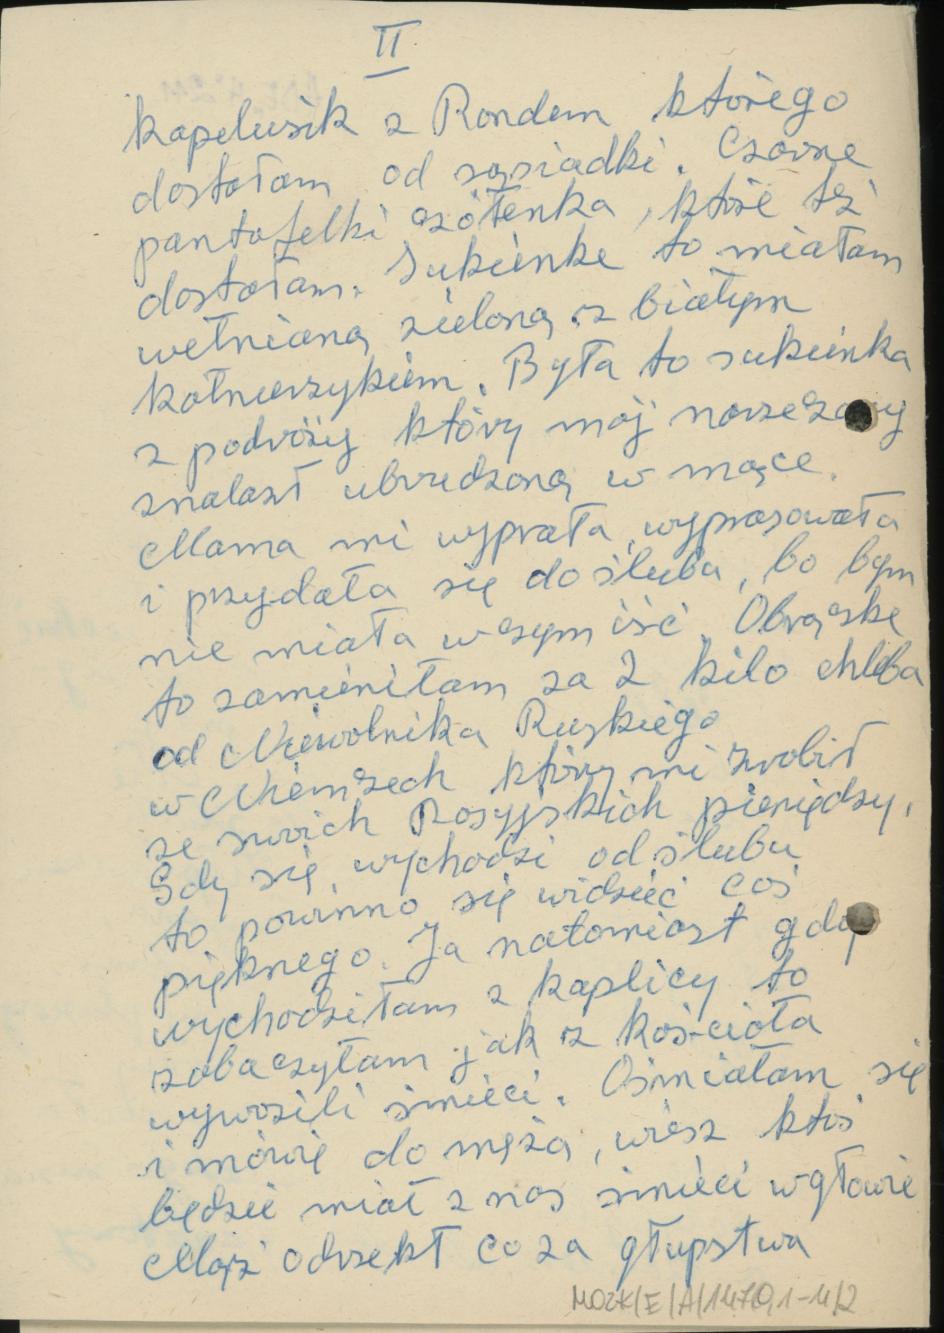 II
kapelusik z Rondem którego
dostałam od sąsiadki. Czarne
pantofelki czółenka, które też
dostałam. Sukienke to miałam
wełnianą zieloną z białym
kołnierzykiem. Była to sukienka
z podróży który mój narzeczony
znalazł ubrudzoną w mące.
Mama mi wyprała, wyprasowała
i przydała się do ślubu, bo bym
nie miała wczym iść. Obrączke
to zamieniłam za 2 kilo chleba
od Niewolnika Ruskiego
w Niemczech który mi zrobił
ze swoich Rosyjskich pieniędzy.
Gdy się wychodzi od ślubu
to powinno się widzieć coś
pięknego. Ja natomiast gdy
wychodziłam z kaplicy to
zobaczyłam jak z kościoła
wywozili śmieci. Ośmiałam się
i mówię do męża, wiesz ktoś
będzie miał z nas śmieci wgłowie
Mąż odrzekł co za głupstwa
MOZK/E/A/1470,1-4/2